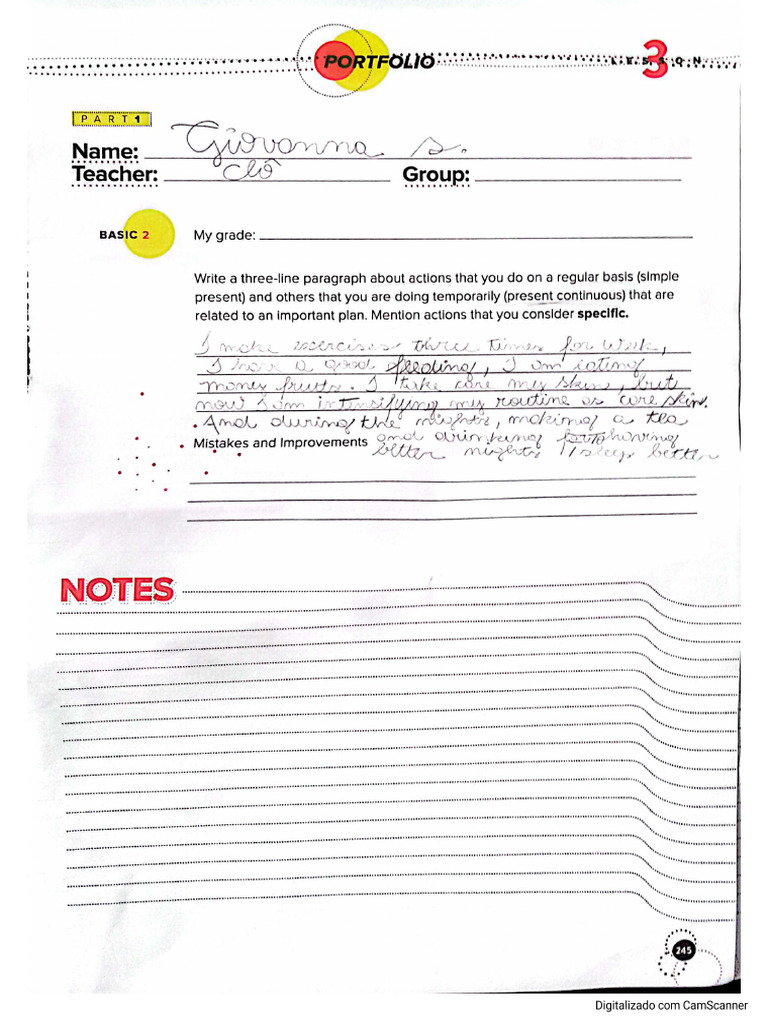 PORTFOLIO
LESSON 3
PART 1
Name: Giovanna S.
Teacher: Clô Group:
BASIC 2
My grade:
Write a three-line paragraph about actions that you do on a regular basis (simple
present) and others that you are doing temporarily (present continuous) that are
related to an important plan. Mention actions that you consider specific.
I make exercises three times for week,
I have a good feeding, I am eating
many fruits. I take care my skin, but
now I am intensifying my routine as care skin.
And during the nights, making a tea
Mistakes and Improvements
and drinking for having
better nights / sleep better
NOTES
245
Digitalizado com CamScanner